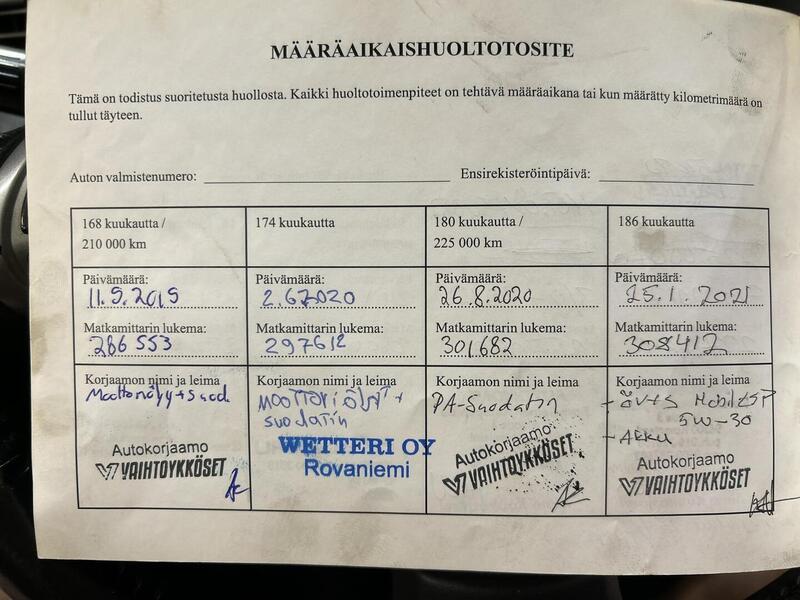 MÄÄRÄAIKAISHUOLTOTOSITE
Tämä on todistus suoritetusta huollosta. Kaikki huoltotoimenpiteet on tehtävä määräaikana tai kun määrätty kilometrimäärä on
tullut täyteen.
Auton valmistenumero:
Ensirekisteröintipäivä:
168 kuukautta /
210 000 km
Päivämäärä:
11.9.2019
Matkamittarin lukema:
286 553
Korjaamon nimi ja leima
Moottoriöljy + suod.
Autokorjaamo
VAIHTOYKKÖSET
174 kuukautta
Päivämäärä:
2.6.2020
Matkamittarin lukema:
297612
Korjaamon nimi ja leima
MOOTTORIÖLJY +
suodatin
WETTERI OY
Rovaniemi
180 kuukautta /
225 000 km
Päivämäärä:
26.8.2020
Matkamittarin lukema:
301682
Korjaamon nimi ja leima
PA-Suodatin
Autokorjaamo
VAIHTOYKKÖSET
186 kuukautta
Päivämäärä:
25.1.2021
Matkamittarin lukema:
308412
Korjaamon nimi ja leima
- öv+s Mobil ESP
5W-30
- AKKU
Autokorjaamo
VAIHTOYKKÖSET